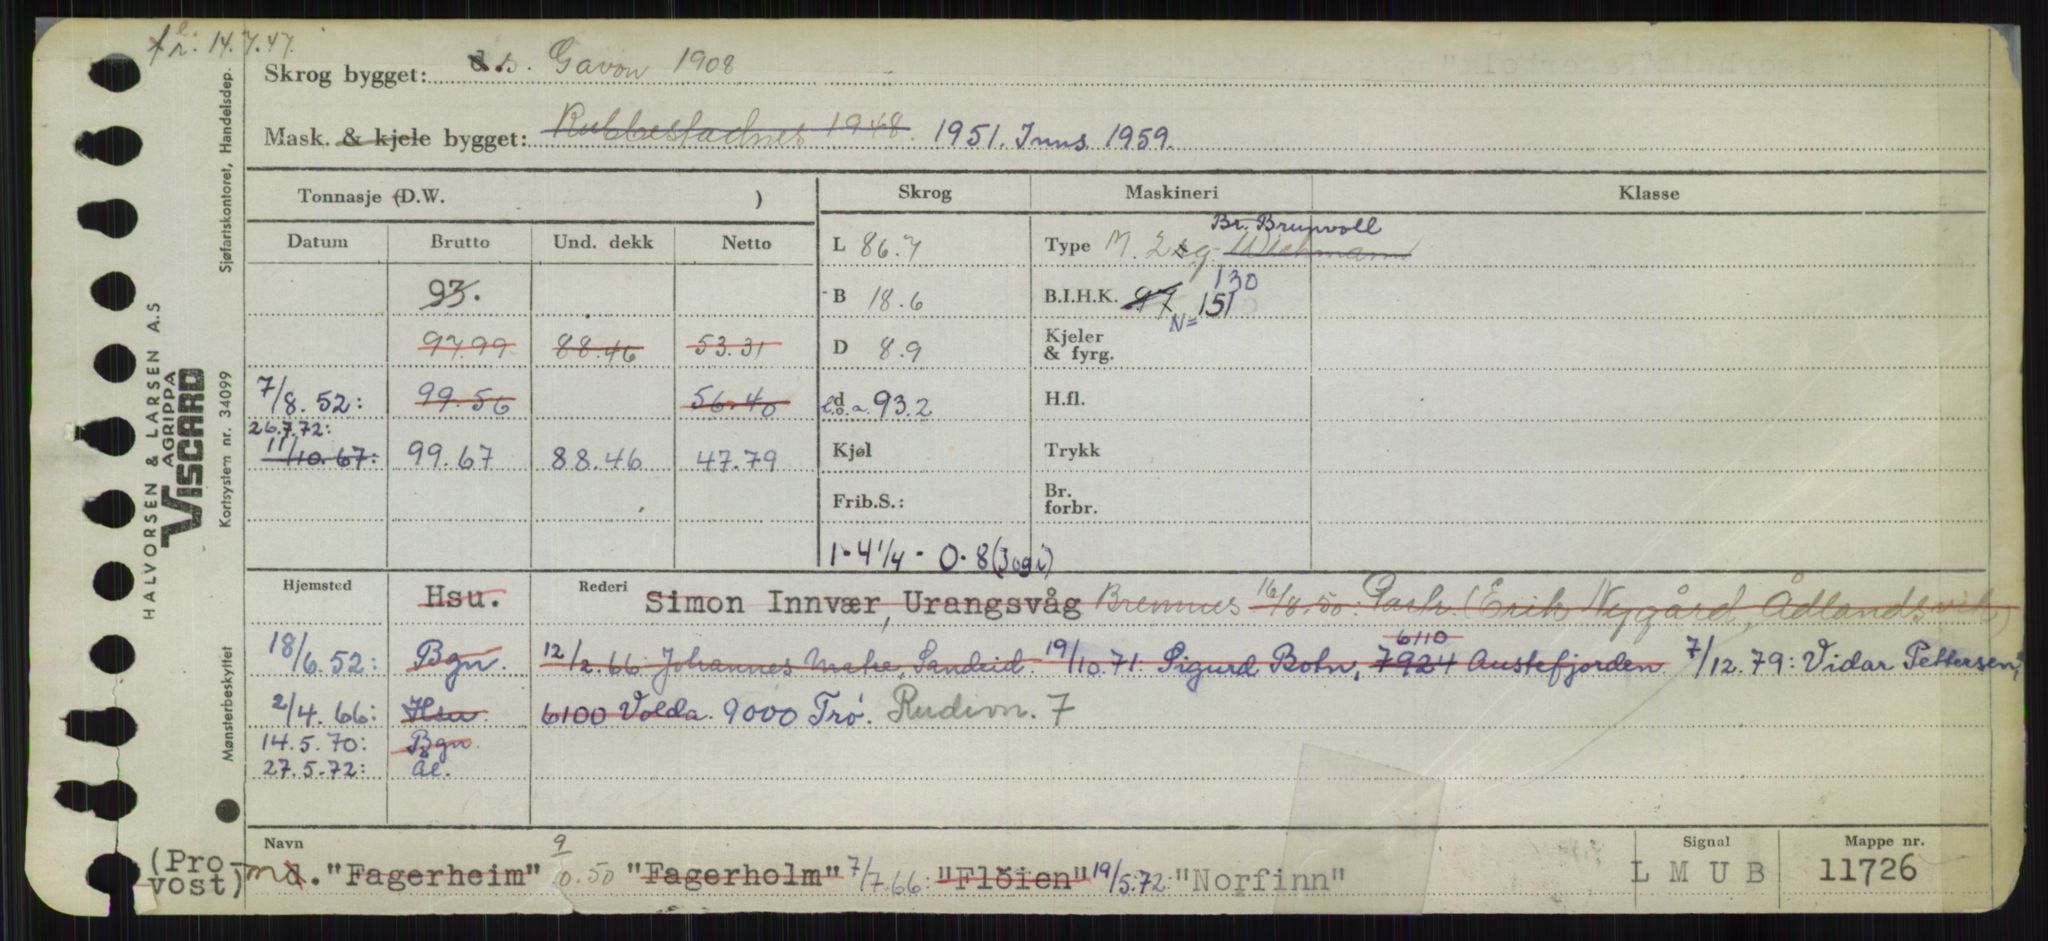 fr: 14.7.47.
Skrog bygget: s. Gavon 1908
Mask. & kjele bygget: Rubbestadnes 1948. 1951. Inns. 1959.
Tonnasje (D.W. ) Skrog Maskineri Klasse
Datum Brutto Und. dekk Netto L 86.7 Type M. 2 sg. Wichmann Br. Brunvoll
93. B 18.6 B.I.H.K. 97 130 N= 151
97.99 88.46 53.31 D 8.9 Kjeler & fyrg.
7/8.52: 99.56 56.40 d l.o.a. 93.2 H.fl.
26.7.72:
11/10.67: 99.67 88.46 47.79 Kjøl Trykk
Frib.S.: Br. forbr.
1 · 4 1/4 - 0 · 8 (3 og i)
Hjemsted Hsu. Rederi Simon Innvær, Urangsvåg Bremnes 16/8.50: Part. (Erik Nygård, Ådlandsvik)
18/6.52: Bgn. 12/2.66 Johannes Sandeid 19/10.71: Sigurd Botn, 7924 6110 Austefjorden 7/12.79: Vidar Pettersen,
2/4.66: Hsu. 6100 Volda. 9000 Trø. 7
14.5.70: Bgn.
27.5.72: Ål.
Navn Signal Mappe nr.
(Provost) m "Fagerheim" 9/ .50 "Fagerholm" 7/7.66: "Flöien" 19/5.72: "Norfinn" L M U B 11726
HALVORSEN & LARSEN A.S
AGRIPPA
VISCARD
Mønsterbeskyttet Kortsystem nr. 34099 Sjøfartskontoret, Handelsdep.